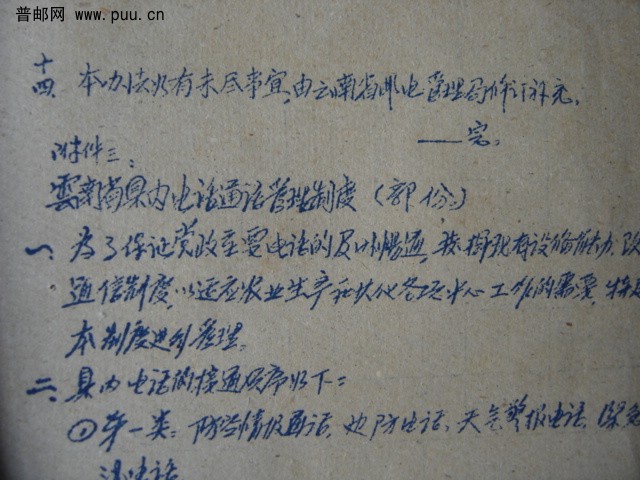 普邮网 www.puu.cn
十四、本办法如有未尽事宜,由云南省邮电管理局修订补充。
——完。
附件三:
雲南省县内电话通话管理制度(部份)
一、为了保证党政主要电话的及时畅通,根据现有设备能力,改
通信制度,以适应农业生产和其他各项中心工作的需要,特
本制度进行管理。
二、县内电话的接通顺序如下:
①第一类:防空情报通话,边防电话,天气警报电话,
电话